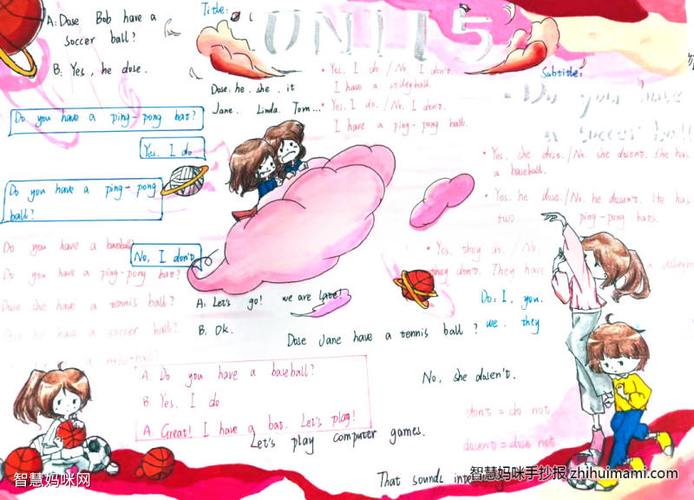 A: Dose Bob have a
soccer ball?
B: Yes, he dose.
Title:
UNIT 5
Dose. he. she. it
Jane. Linda. Tom...
Yes, I do / No, I don't
I have a
Yes, I do. / No, I don't.
I have a ping-pong ball.
Subtitle:
Do you have
a soccer ball
Do you have a ping-pong bat?
Yes. I do
Do you have a ping-pong
ball?
No, I don't
Yes, she dose. / No, she dosent. She has
a baseball.
Yes, he dose. / No, he dosent. He has
two ping-pong bats.
Yes, they do. / No
they don't. They have
Do you have a baseball
Do you have a ping-pong bat?
Dose she have a tennis ball?
Dose he have a soccer ball?
A: Let's go! we are late!
B: Ok.
Do: I. you.
we. they
Dose Jane have a tennis ball?
No, she dosen't.
A: Do you have a baseball?
B: Yes. I do
A: Great! I have a bat. Let's play!
Let's play computer games.
don't = do not
dosent = dose not
That sounds
智慧妈咪网
智慧妈咪手抄报 zhihuimami.com